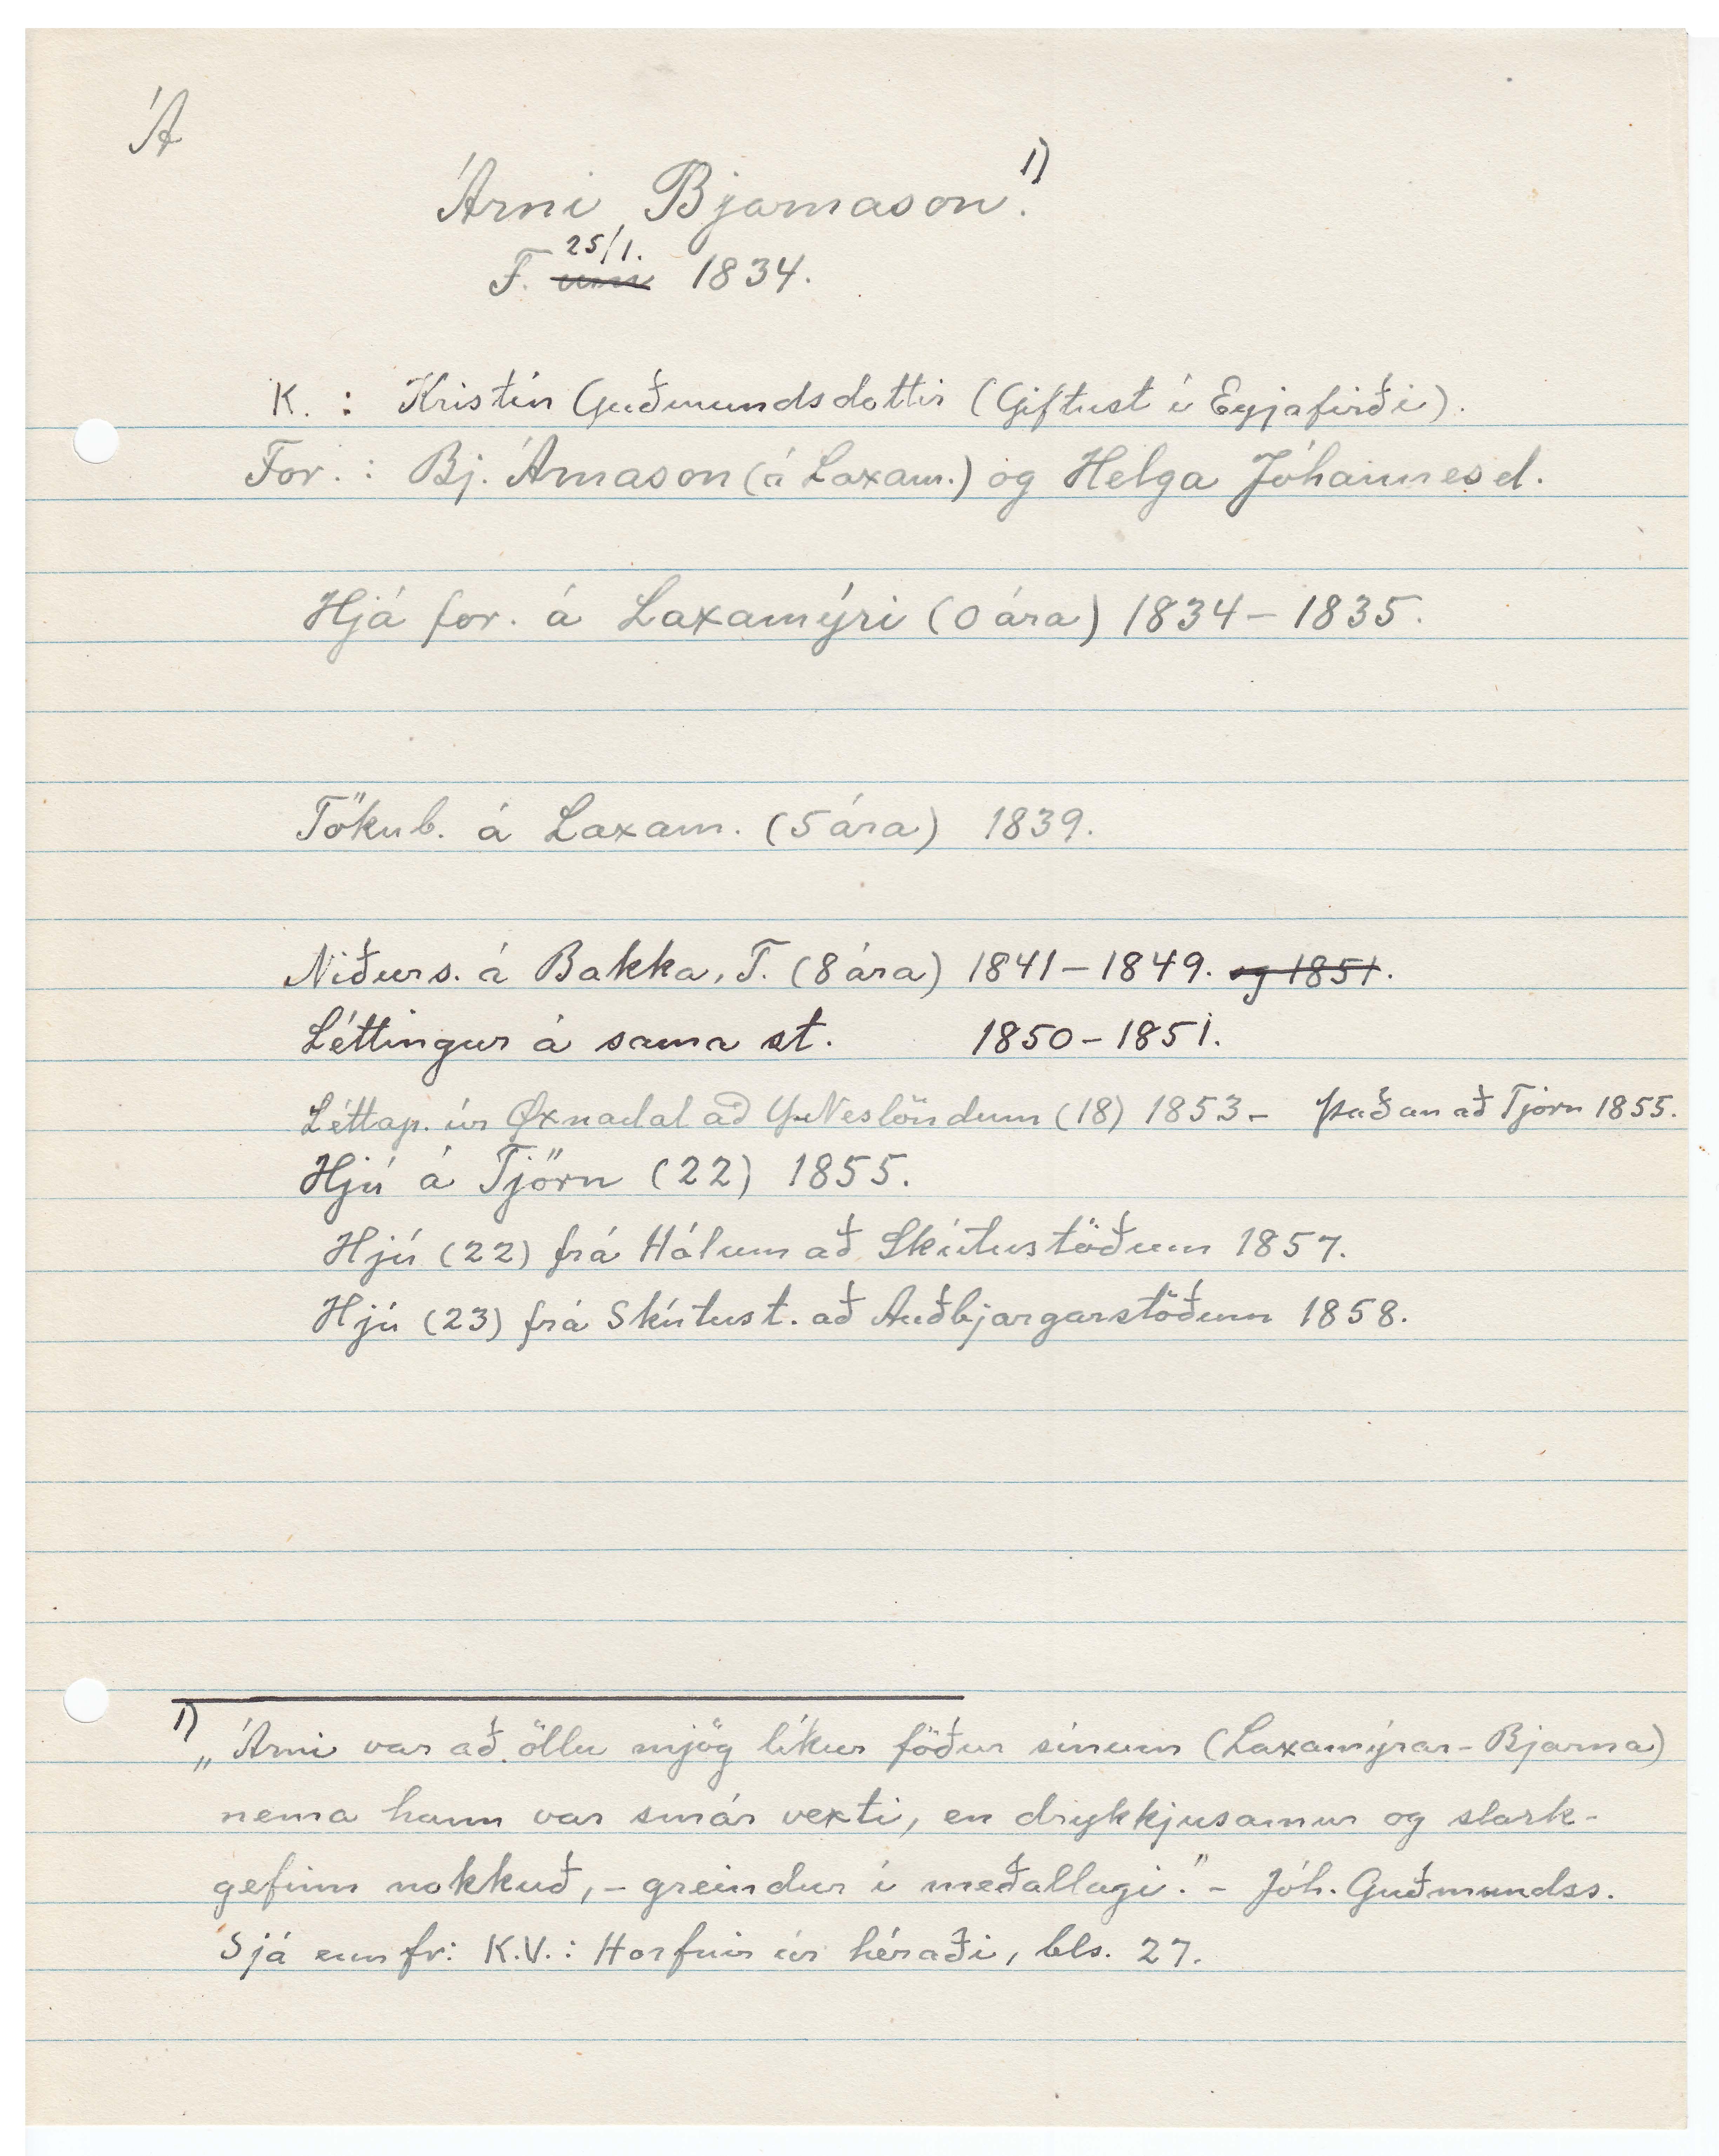 Á
Árni Bjarnason. 1)
25/1.
F. um 1834.
K. : Kristín Guðmundsdottir (Giftust í Eyjafirði).
For. : Bj. Árnason (á Laxam.) og Helga Jóhannesd.
Hjá for. á Laxamýri (0 ára) 1834 - 1835.
Tökub. á Laxam. (5 ára) 1839.
Niðurs. á Bakka, T. (8 ára) 1841 - 1849. og 1851.
Léttingur á sama st. 1850 - 1851.
Léttap. úr Øxnadal að Y-Neslöndum (18) 1853 - þaðan að Tjörn 1855.
Hjú á Tjörn (22) 1855.
Hjú (22) frá Hálum að Skútustöðum 1857.
Hjú (23) frá Skútust. að Auðbjargarstöðum 1858.
1)
„Árni var að öllu mjög líkur föður sínum (Laxamýrar-Bjarna)
nema hann var smár vexti, en drykkjusamur og slark-
gefinn nokkuð, - greindur í meðallagi." - Jóh. Guðmundss.
Sjá enn fr: K.V.: Horfnir úr héraði, bls. 27.